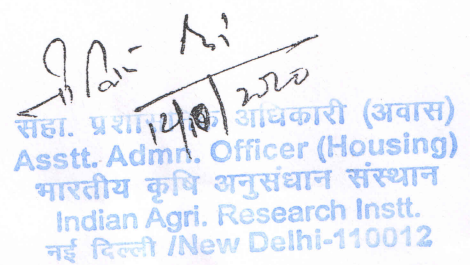 2020
सहा. प्रशासनिक अधिकारी (अवास)
Asstt. Admn. Officer (Housing)
भारतीय कृषि अनुसंधान संस्थान
Indian Agri. Research Instt.
नई दिल्ली /New Delhi-110012